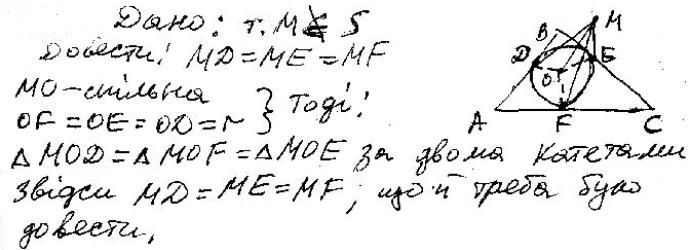 Дано: т. M ∉ S
Довести: MD = ME = MF
MO – спільна
OF = OE = OD = r } Тоді:
△MOD = △MOF = △MOE за двома катетами
Звідси MD = ME = MF, що й треба було
довести.
M
B
D
E
O
A
F
C